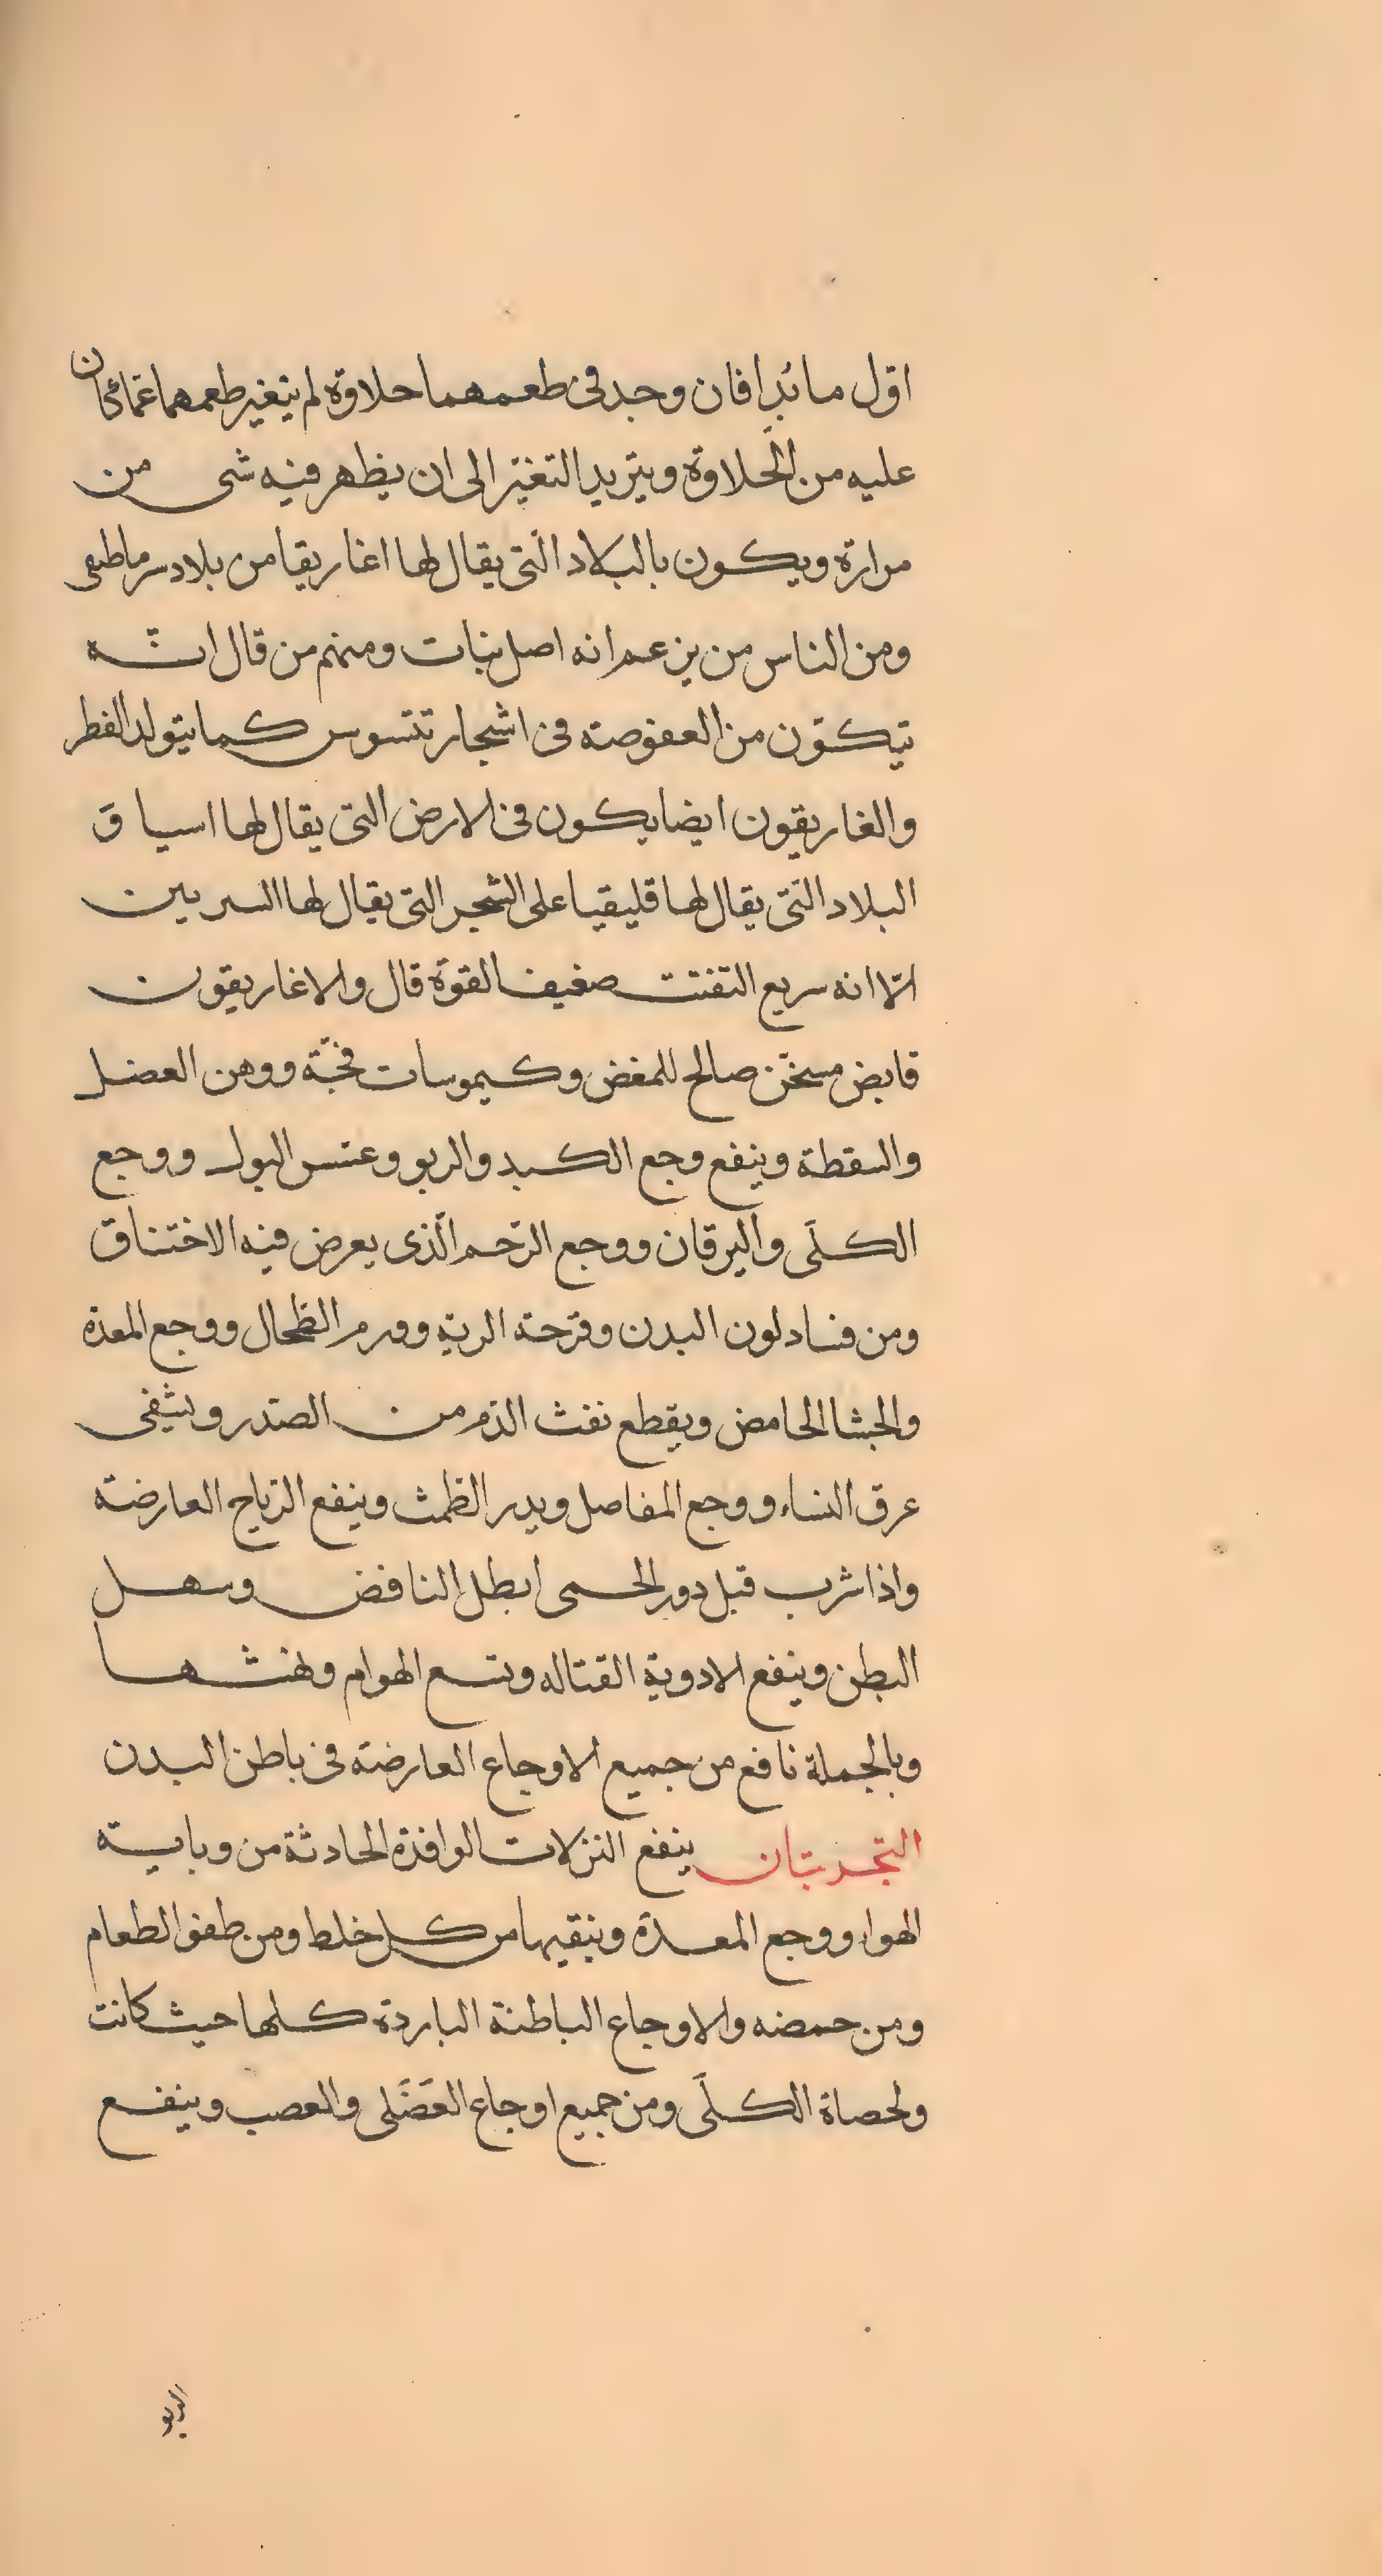 اوّل ما بُدِا فان وجد فى طعمهما حلاوة لم يتغير طعمهما عمّا كان
عليه من الحَلاوة ويتزيد التغيّر الى ان يظهر فيه شى من
مرارة ويكون بالبلاد الّتى يقال لها اغاريقا من بلاد سرماطيقى
ومن الناس من يزعم انه اصل نبات ومنهم من قال انّه
يتكوّن من العفوصة فى اشجار تتسوس كما يتولد الفطر
والغاريقون ايضا يكون فى الارض التى يقال لها اسيا وَ
البلاد الّتى يقال لها قليقيا على الشجر التى يقال لها السربين
الّا انه سريع التفتت ضعيف القوّة قال والاغاريقون
قابض مسخّن صالح للمغض وكيموسات فجّة ووهن العضل
والسقطة وينفع وجع الكبد والربو وعسر البول ووجع
الكلَى واليرقان ووجع الرّحم الّذى يعرض فيه الاختناق
ومن فساد لون البدن وقرحة الرية وورم الطحال ووجع المعدة
والجشا الحامض ويقطع نفث الدّم من الصّدر ويشفى
عرق النساء ووجع المفاصل ويدر الطمث وينفع الرّياح العارضة
واذا شرب قبل دور الحمى ابطل النافض وسهل
البطن وينفع الادوية القتاله ولسع الهوام ولهشها
وبالجملة نافع من جميع الاوجاع العارضة فى باطن البدن
التجربتان ينفع النزلات الوافدة الحادثة من وبايية
الهواء ووجع المعدة وينقيها من كل خلط ومن طفو الطعام
ومن حمضه والاوجاع الباطنة الباردة كلها حيث كانت
ولحصاة الكلَى ومن جميع اوجاع العَضَلى والعصب وينفع
الربو